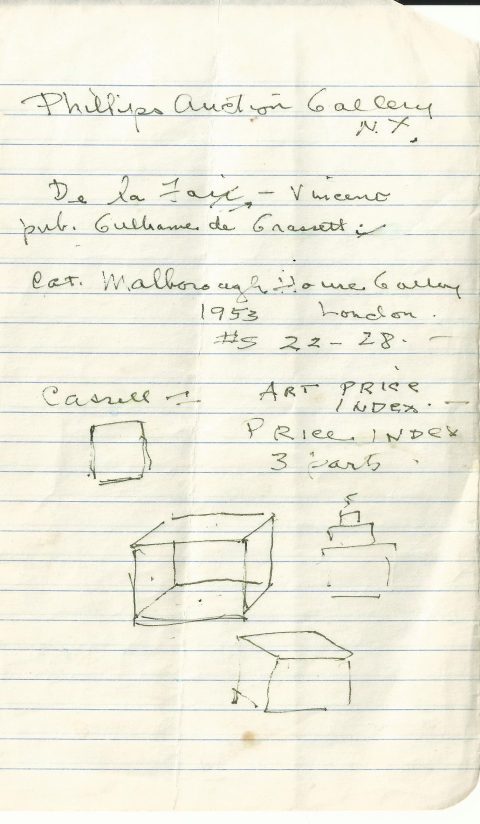 Phillips Auction Gallery
N.Y.
De la Faix, - Vincent
pub. Gulhame de Grassett
Cat. Malborough House Gallery
1953 London.
#s 22 - 28. -
Cassell -
ART PRICE
INDEX. -
PRICE INDEX
3 parts.